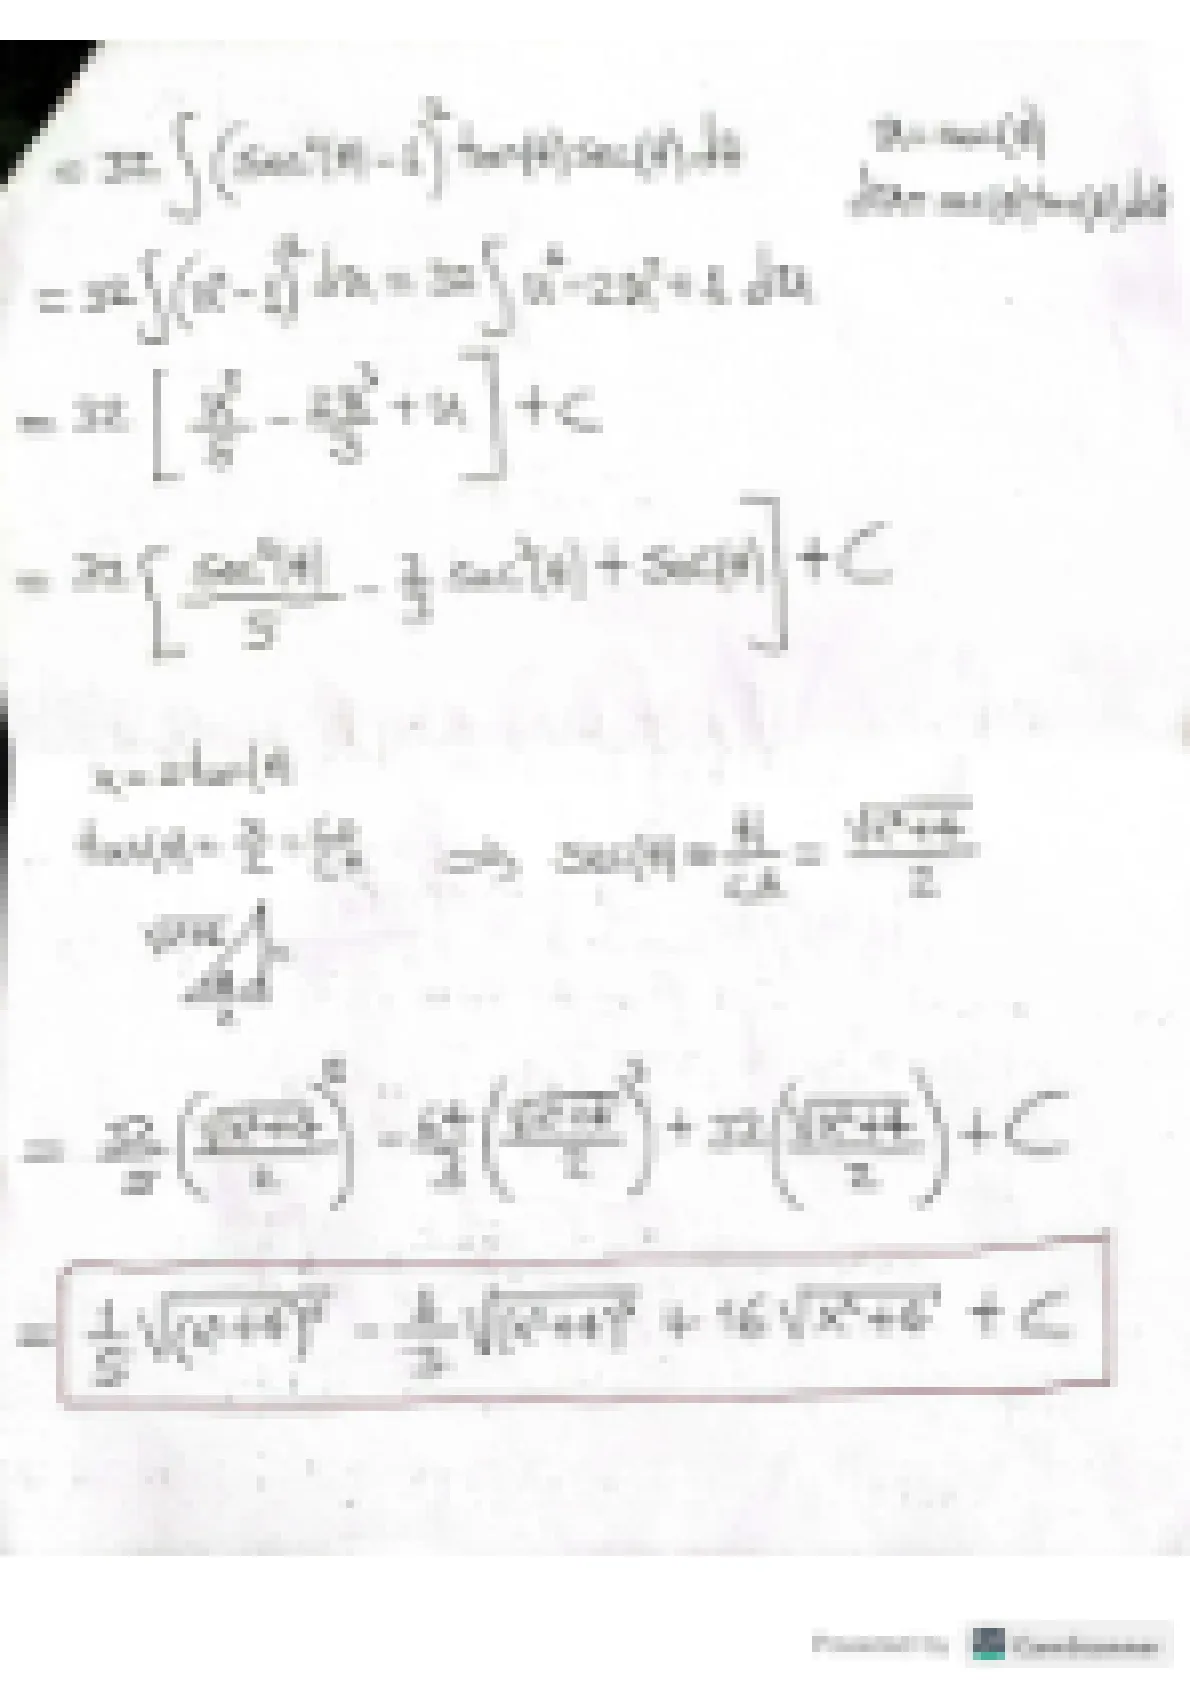 = 32 ∫ (sec²(θ) - 1)² tan(θ) sec(θ) dθ
u = sec(θ)
du = sec(θ) tan(θ) dθ
= 32 ∫ (u² - 1)² du = 32 ∫ u⁴ - 2u² + 1 du
= 32 [ u⁵/5 - 2u³/3 + u ] + C
= 32 [ sec⁵(θ)/5 - 2/3 sec³(θ) + sec(θ) ] + C
x = 2 tan(θ)
tan(θ) = x/2 = CO/CA ⇒ sec(θ) = H/CA = √(x²+4)/2
√(x²+4) x
θ
2
= 32/5 (√(x²+4)/2)⁵ - 64/3 (√(x²+4)/2)³ + 32 (√(x²+4)/2) + C
= 1/5 √(x²+4)⁵ - 8/3 √(x²+4)³ + 16 √(x²+4) + C
CamScanner